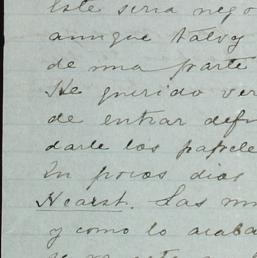 este seria nego
aunque talvez
de una parte
He querido ver
de entrar defi
darle los papele
En pocos dias
Hearst. Las mi
y como lo acaba